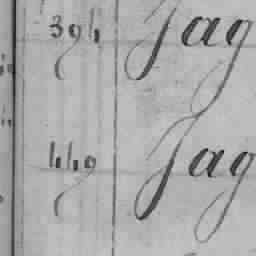 394 Jag
449 Jag